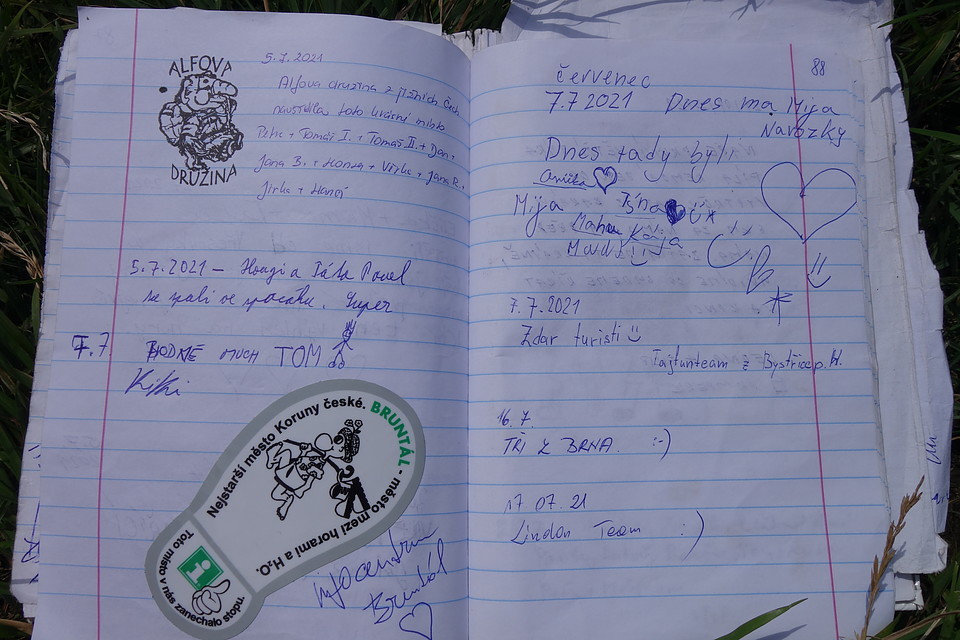 ALFOVA
DRUŽINA
5.7.2021
Alfova družina z jižních Čech
navštívila toto krásné místo
Péťa + Tomáš I. + Tomáš II. + Jan +
Jana B. + Honza + Vilda + Jana R. +
Jirka + Hanoš
5.7.2021 – Hongi a Táta Pavel
na spali ve spacáku. Super
7.7 HODNĚ MUCH TOM
Kiki
Nejstarší město Koruny české. BRUNTÁL - město mezi horami a H₂O.
Toto místo v nás zanechalo stopu.
Infocentrum
Bruntál
88
červenec
7.7 2021 Dnes ma Mija
Narozky
Dnes tady byli
Anička
Mija
Kája
7.7.2021
Zdar turisti
Tajfunteam z Bystřice p. H.
16.7.
TŘI Z BRNA. :-)
17 07. 21
Lindon Team :)